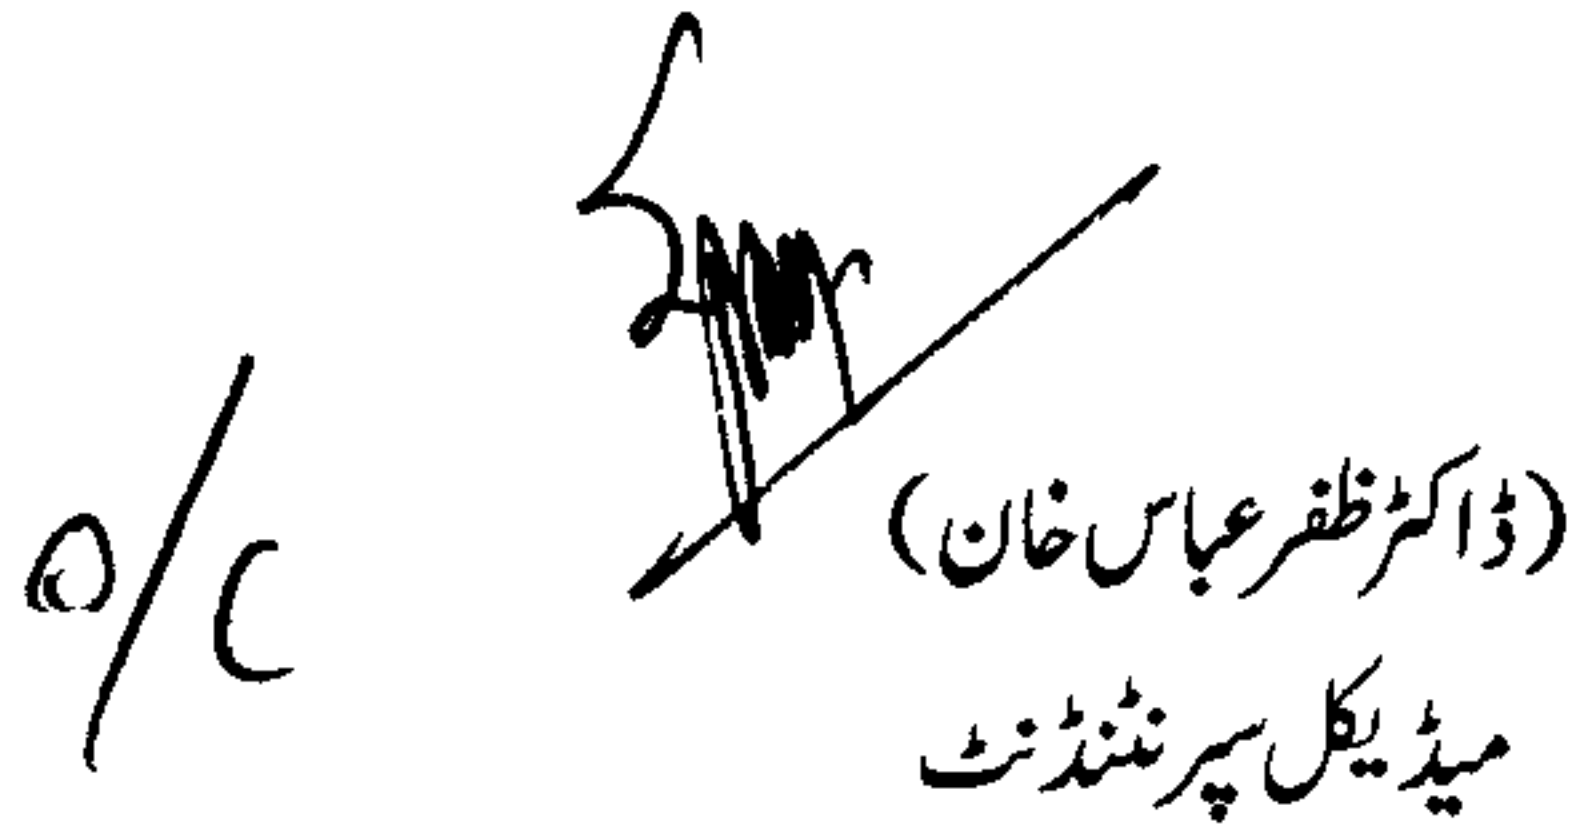 O/C
(ڈاکٹر ظفر عباس خان)
میڈیکل سپرنٹنڈنٹ